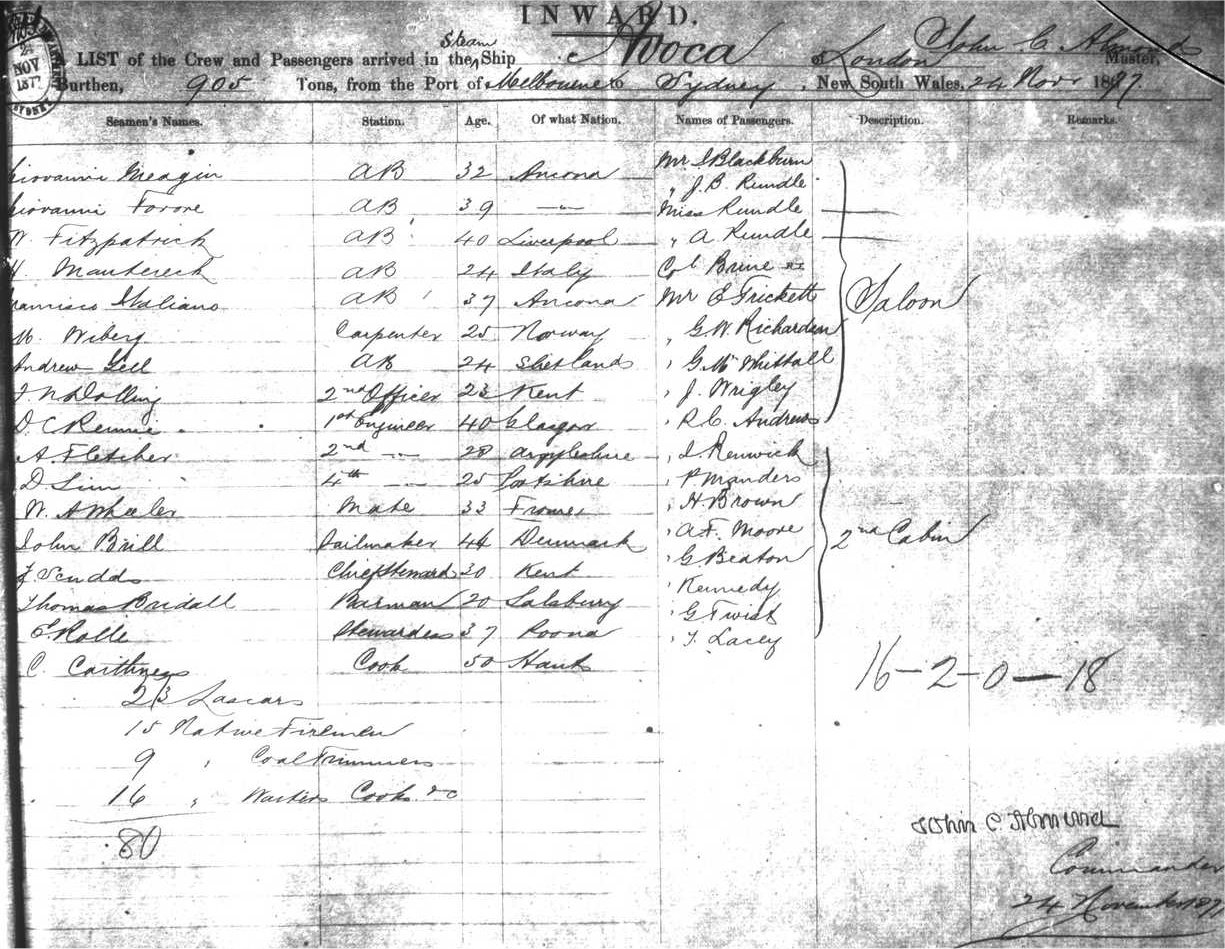 INWARD.
A LIST of the Crew and Passengers arrived in the Steam Ship Avoca of London John C. Almond Muster,
24 NOV 187 SYDNEY
Burthen, 905 Tons, from the Port of Melbourne to Sydney, New South Wales, 24 Novr 1877.
Seamen's Names. Station. Age. Of what Nation. Names of Passengers. Description. Remarks.
Mr Blackburn
Giovanni Meagin AB 32 Ancona
" J. B. Rundle
Giovanni Favore AB 39 —"— Miss Rundle
W. Fitzpatrick AB 40 Liverpool " A Rundle
H. Mantereck AB 24 Italy Col Brine RE
Francisco Italiano AB 37 Ancona Mr E Trickett Saloon
M. Wiberg Carpenter 25 Norway " G. W. Richardson
Andrew Gell AB 24 Shetlands " G. Whittall
Dolling 2nd Officer 23 Kent " J. Wrigley
D. C Rennie 1st Engineer 40 Glasgow " R. C. Andrews
A. Fletcher 2nd —"— 28 Argyleshire " Renwick
D Sim 4th —"— 25 " P Manders
W. A Wheeler Mate 33 Frome " H. Brown
John Brill Sailmaker 44 Denmark " A. F. Moore 2nd Cabin
" G Beaton
Scudds Chief Steward 30 Kent " Kennedy
Thomas Bridall Barman 20 Salsbury " G Twist
E. Rolle Stewardess 37 Poona " T. Lacey
C. Caithness Cook 50 Hants 16-2-0-18
23 Lascars
15 Native Firemen
9 " Coal Trimmers
16 " Waiters Cooks &c
80
John C Almond
Commander
24 November 1877